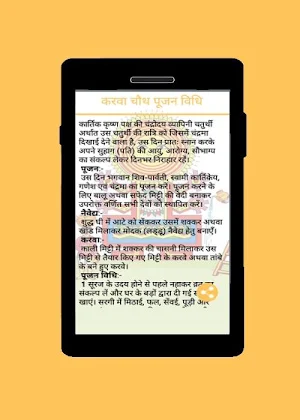 करवा चौथ पूजन विधि
कार्तिक कृष्ण पक्ष की चंद्रोदय व्यापिनी चतुर्थी
अर्थात उस चतुर्थी की रात्रि को जिसमें चंद्रमा
दिखाई देने वाला है, उस दिन प्रातः स्नान करके
अपने सुहाग (पति) की आयु, आरोग्य, सौभाग्य
का संकल्प लेकर दिनभर निराहार रहें।
पूजन:-
उस दिन भगवान शिव-पार्वती, स्वामी कार्तिकेय,
गणेश एवं चंद्रमा का पूजन करें। पूजन करने के
लिए बालू अथवा सफेद मिट्टी की वेदी बनाकर
उपरोक्त वर्णित सभी देवों को स्थापित करें।
नैवेद्य:-
शुद्ध घी में आटे को सेंककर उसमें शक्कर अथवा
खांड मिलाकर मोदक (लड्डू) नैवेद्य हेतु बनाएँ।
करवा:-
काली मिट्टी में शक्कर की चासनी मिलाकर उस
मिट्टी से तैयार किए गए मिट्टी के करवे अथवा तांबे
के बने हुए करवे।
पूजन विधि:-
1 सूरज के उदय होने से पहले नहाकर व्रत का
संकल्प लें और घर के बड़ों द्वारा दी गई
खाएं। सरगी में मिठाई, फल, सेंवई, पूड़ी और